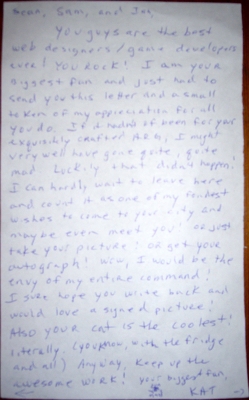 Sean, Sam, and Jon,
You guys are the best
web designers / game developers
ever! YOU ROCK! I am your
biggest fan and just had to
send you this letter and a small
token of my appreciation for all
you do. If it hadn't of been for your
exquisitly crafted ARG, I might
very well have gone quite, quite
mad. Luckily that didn't happen!
I can hardly wait to leave here
and count it as one of my fondest
wishes to come to your city and
maybe even meet you! or just
take your picture! or get your
autograph! wow, I would be the
envy of my entire command!
I sure hope you write back and
would love a signed picture!
Also your cat is the coolest!
literally. (you know, with the fridge
and all) Anyway, keep up the
awesome work! your biggest fan,
KAT